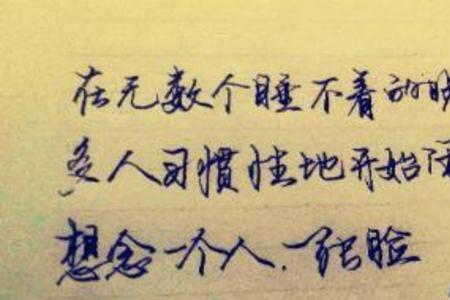 在无数个睡不着的
多人习惯性地开始
想念一个人.一张脸